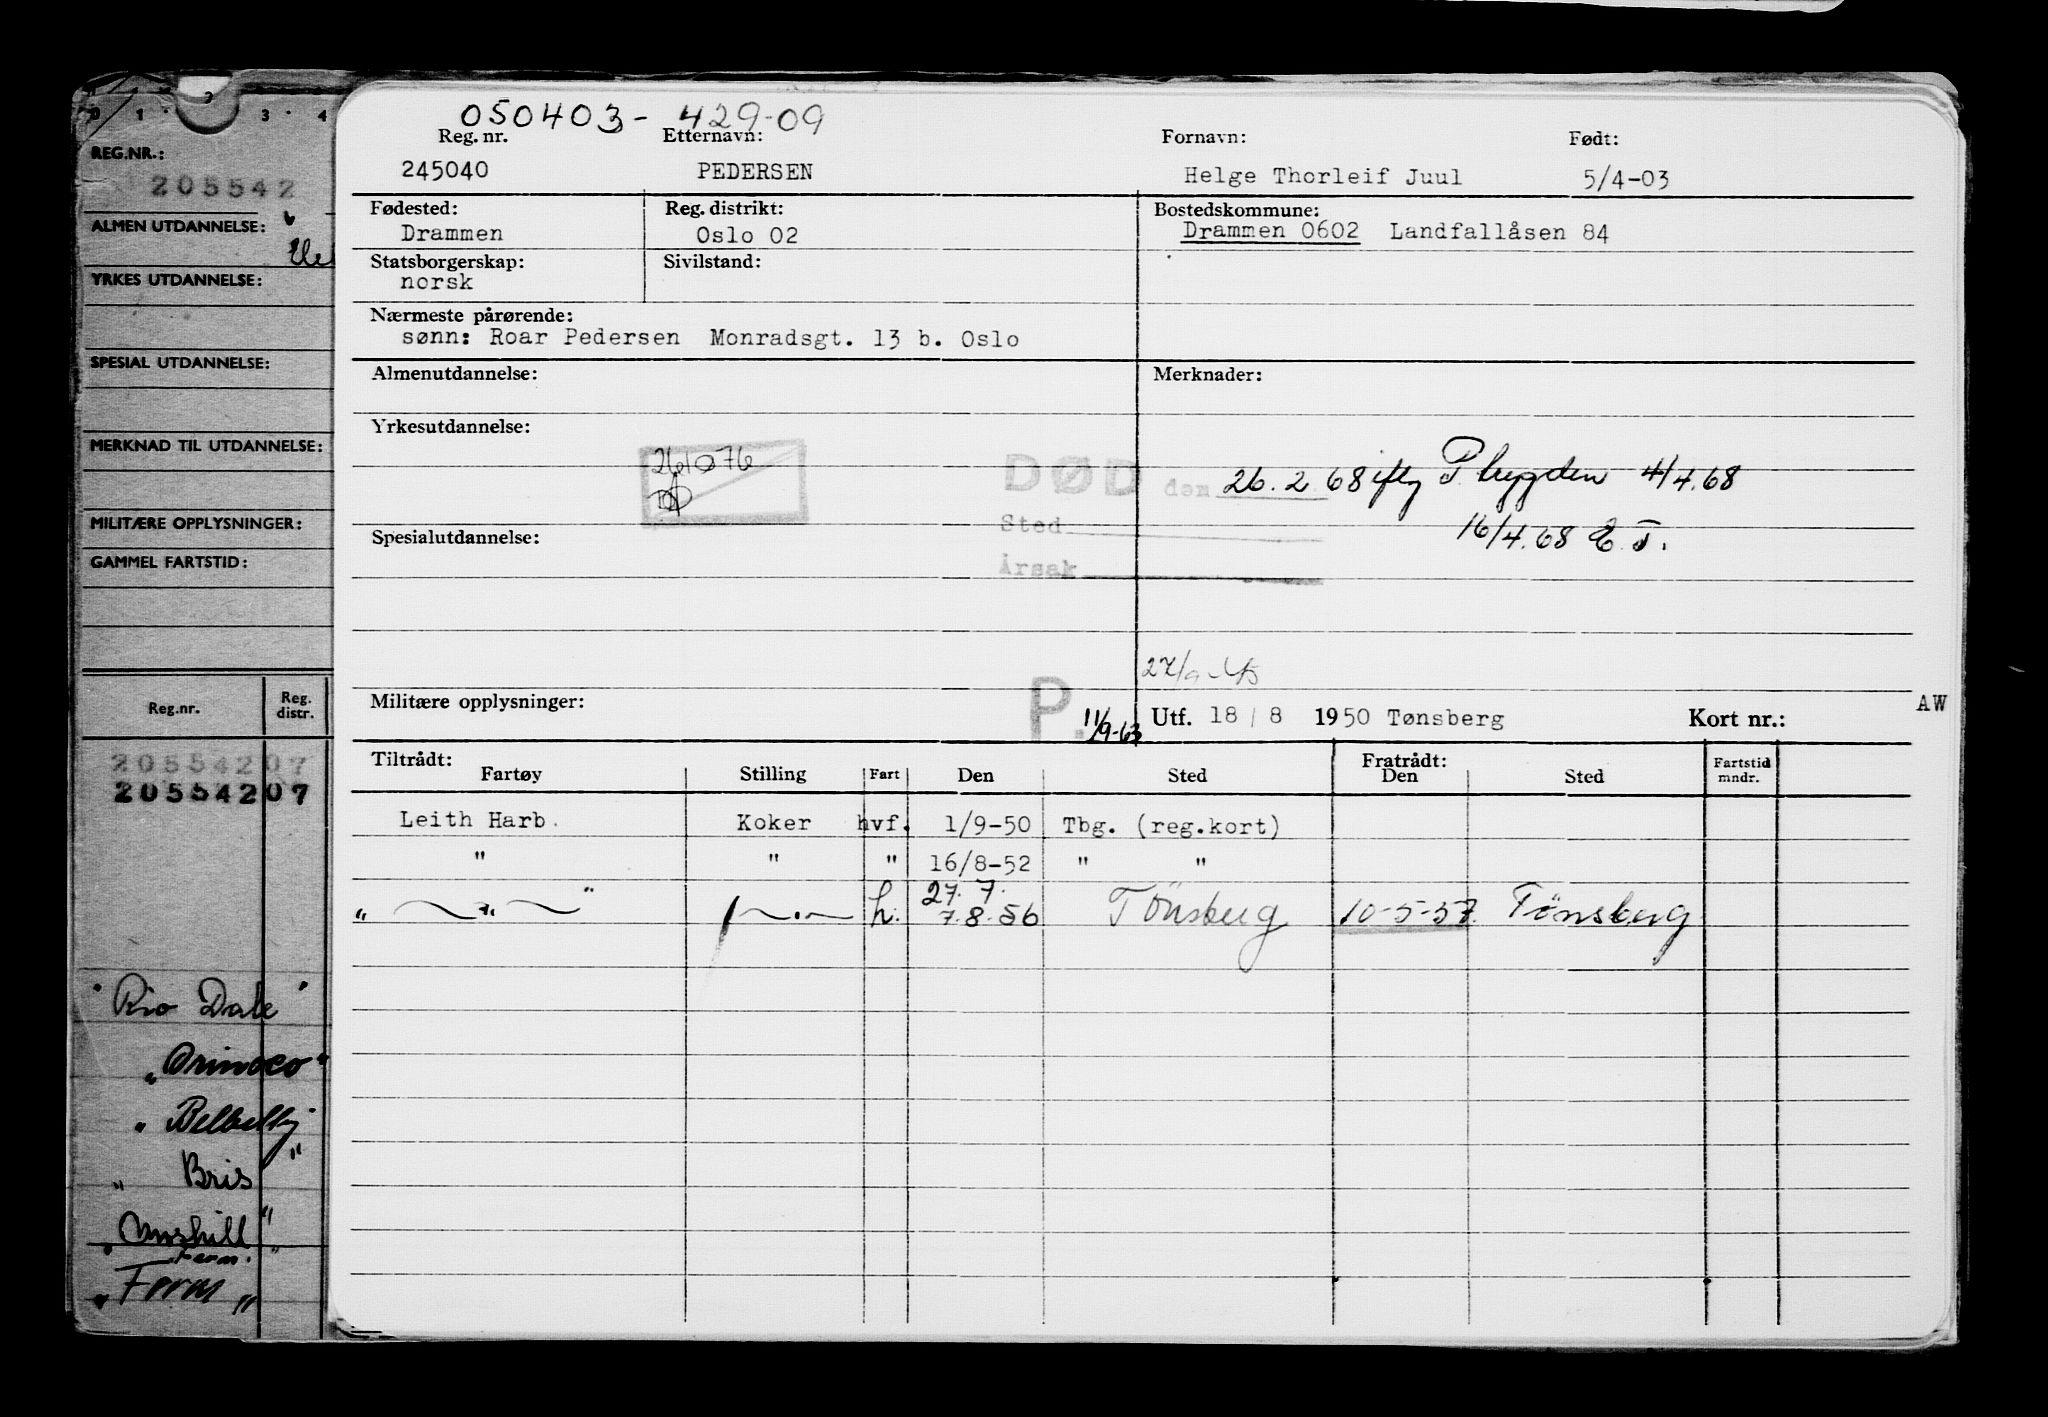 0 1 2 3 4
REG.NR.:
205542
ALMEN UTDANNELSE:
YRKES UTDANNELSE:
SPESIAL UTDANNELSE:
MERKNAD TIL UTDANNELSE:
MILITÆRE OPPLYSNINGER:
GAMMEL FARTSTID:
Reg.nr. Reg. distr.
20554207
20554207
"Rio Dale"
"Orinoco"
"Belbetty"
"Bris"
Form.
"Form"
050403-42909
Reg. nr. Etternavn: Fornavn: Født:
245040 PEDERSEN Helge Thorleif Juul 5/4-03
Fødested: Reg. distrikt: Bostedskommune:
Drammen Oslo 02 Drammen 0602 Landfallåsen 84
Statsborgerskap: Sivilstand:
norsk
Nærmeste pårørende:
sønn: Roar Pedersen Monradsgt. 13 b. Oslo
Almenutdannelse: Merknader:
Yrkesutdannelse:
261076
DØD den 26.2.68 iflg P. trygden 4/4.68
Sted 16/4.68 E.T.
Spesialutdannelse:
Årsak
Militære opplysninger: P. 11/9-63 Utf. 18/8 1950 Tønsberg Kort nr.: AW
Tiltrådt: Fratrådt:
Fartøy Stilling Fart Den Sted Den Sted Fartstid mndr.
Leith Harb. Koker hvf. 1/9-50 Tbg. (reg.kort)
" " " 16/8-52 " "
27.7.
" " " h. 7.8.56 Tönsberg 10-5-57 Tönsberg